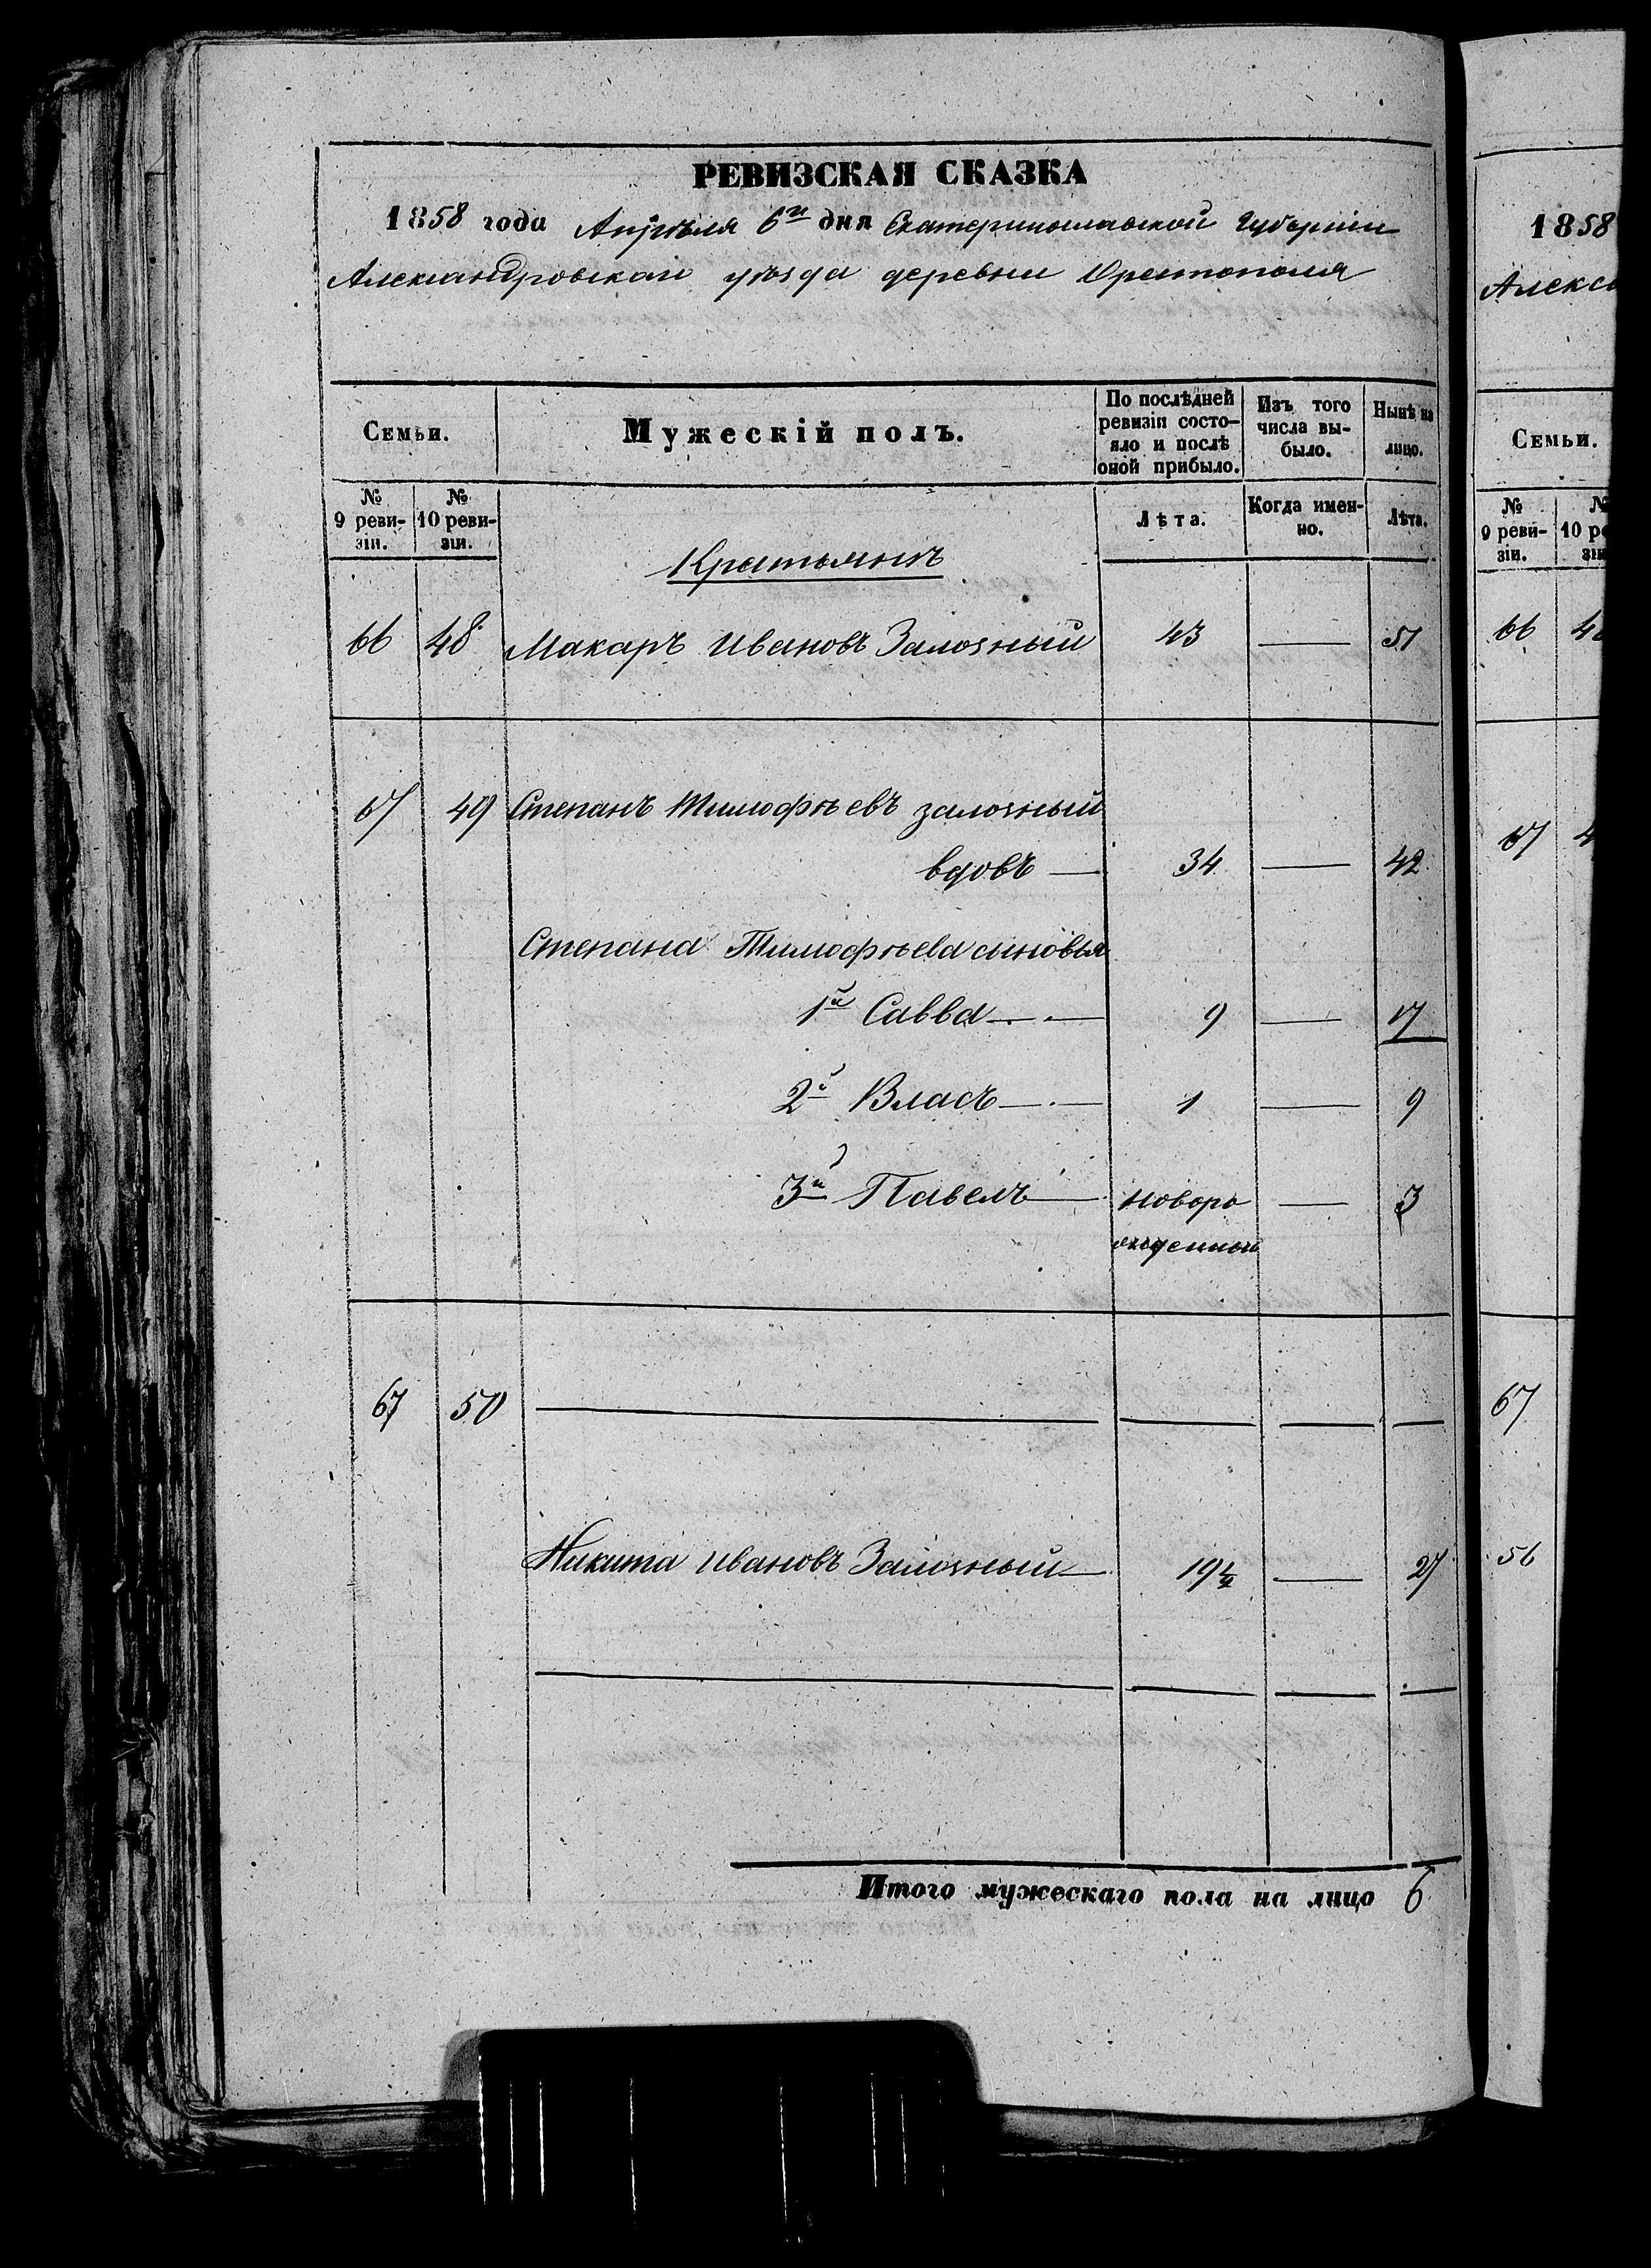 РЕВИЗСКАЯ СКАЗКА
1858 года Апрѣля 6го дня Екатеринославской Губерніи
Александровскаго уѣзда деревни Орестополя
Семьи.
Мужескій полъ.
По послѣдней ревизіи состо-
яло и послѣ оной прибыло.
Изъ того числа вы-
было.
Нынѣ на лицо.
№ 9 реви-
зіи.
№ 10 реви-
зіи.
Лѣта.
Когда имен-
но.
Лѣта.
Крестьянъ
66 48 Макаръ Ивановъ Залозный 43 — 51
67 49 Степанъ Тимофѣевъ залозный
вдовъ — 34 — 42
Степана Тимофѣева сыновья
1й Савва — 9 — 17
2й Власъ — 1 — 9
3й Павелъ — новоро — 3
жденный
67 50 — — — —
Никита Ивановъ Залозный — 19½ — 27
Итого мужескаго пола на лицо 6
1858
Алекса
Семьи.
№ 9 реви-
зіи.
№
10 ре
зіи
66 4
67 4
67
56